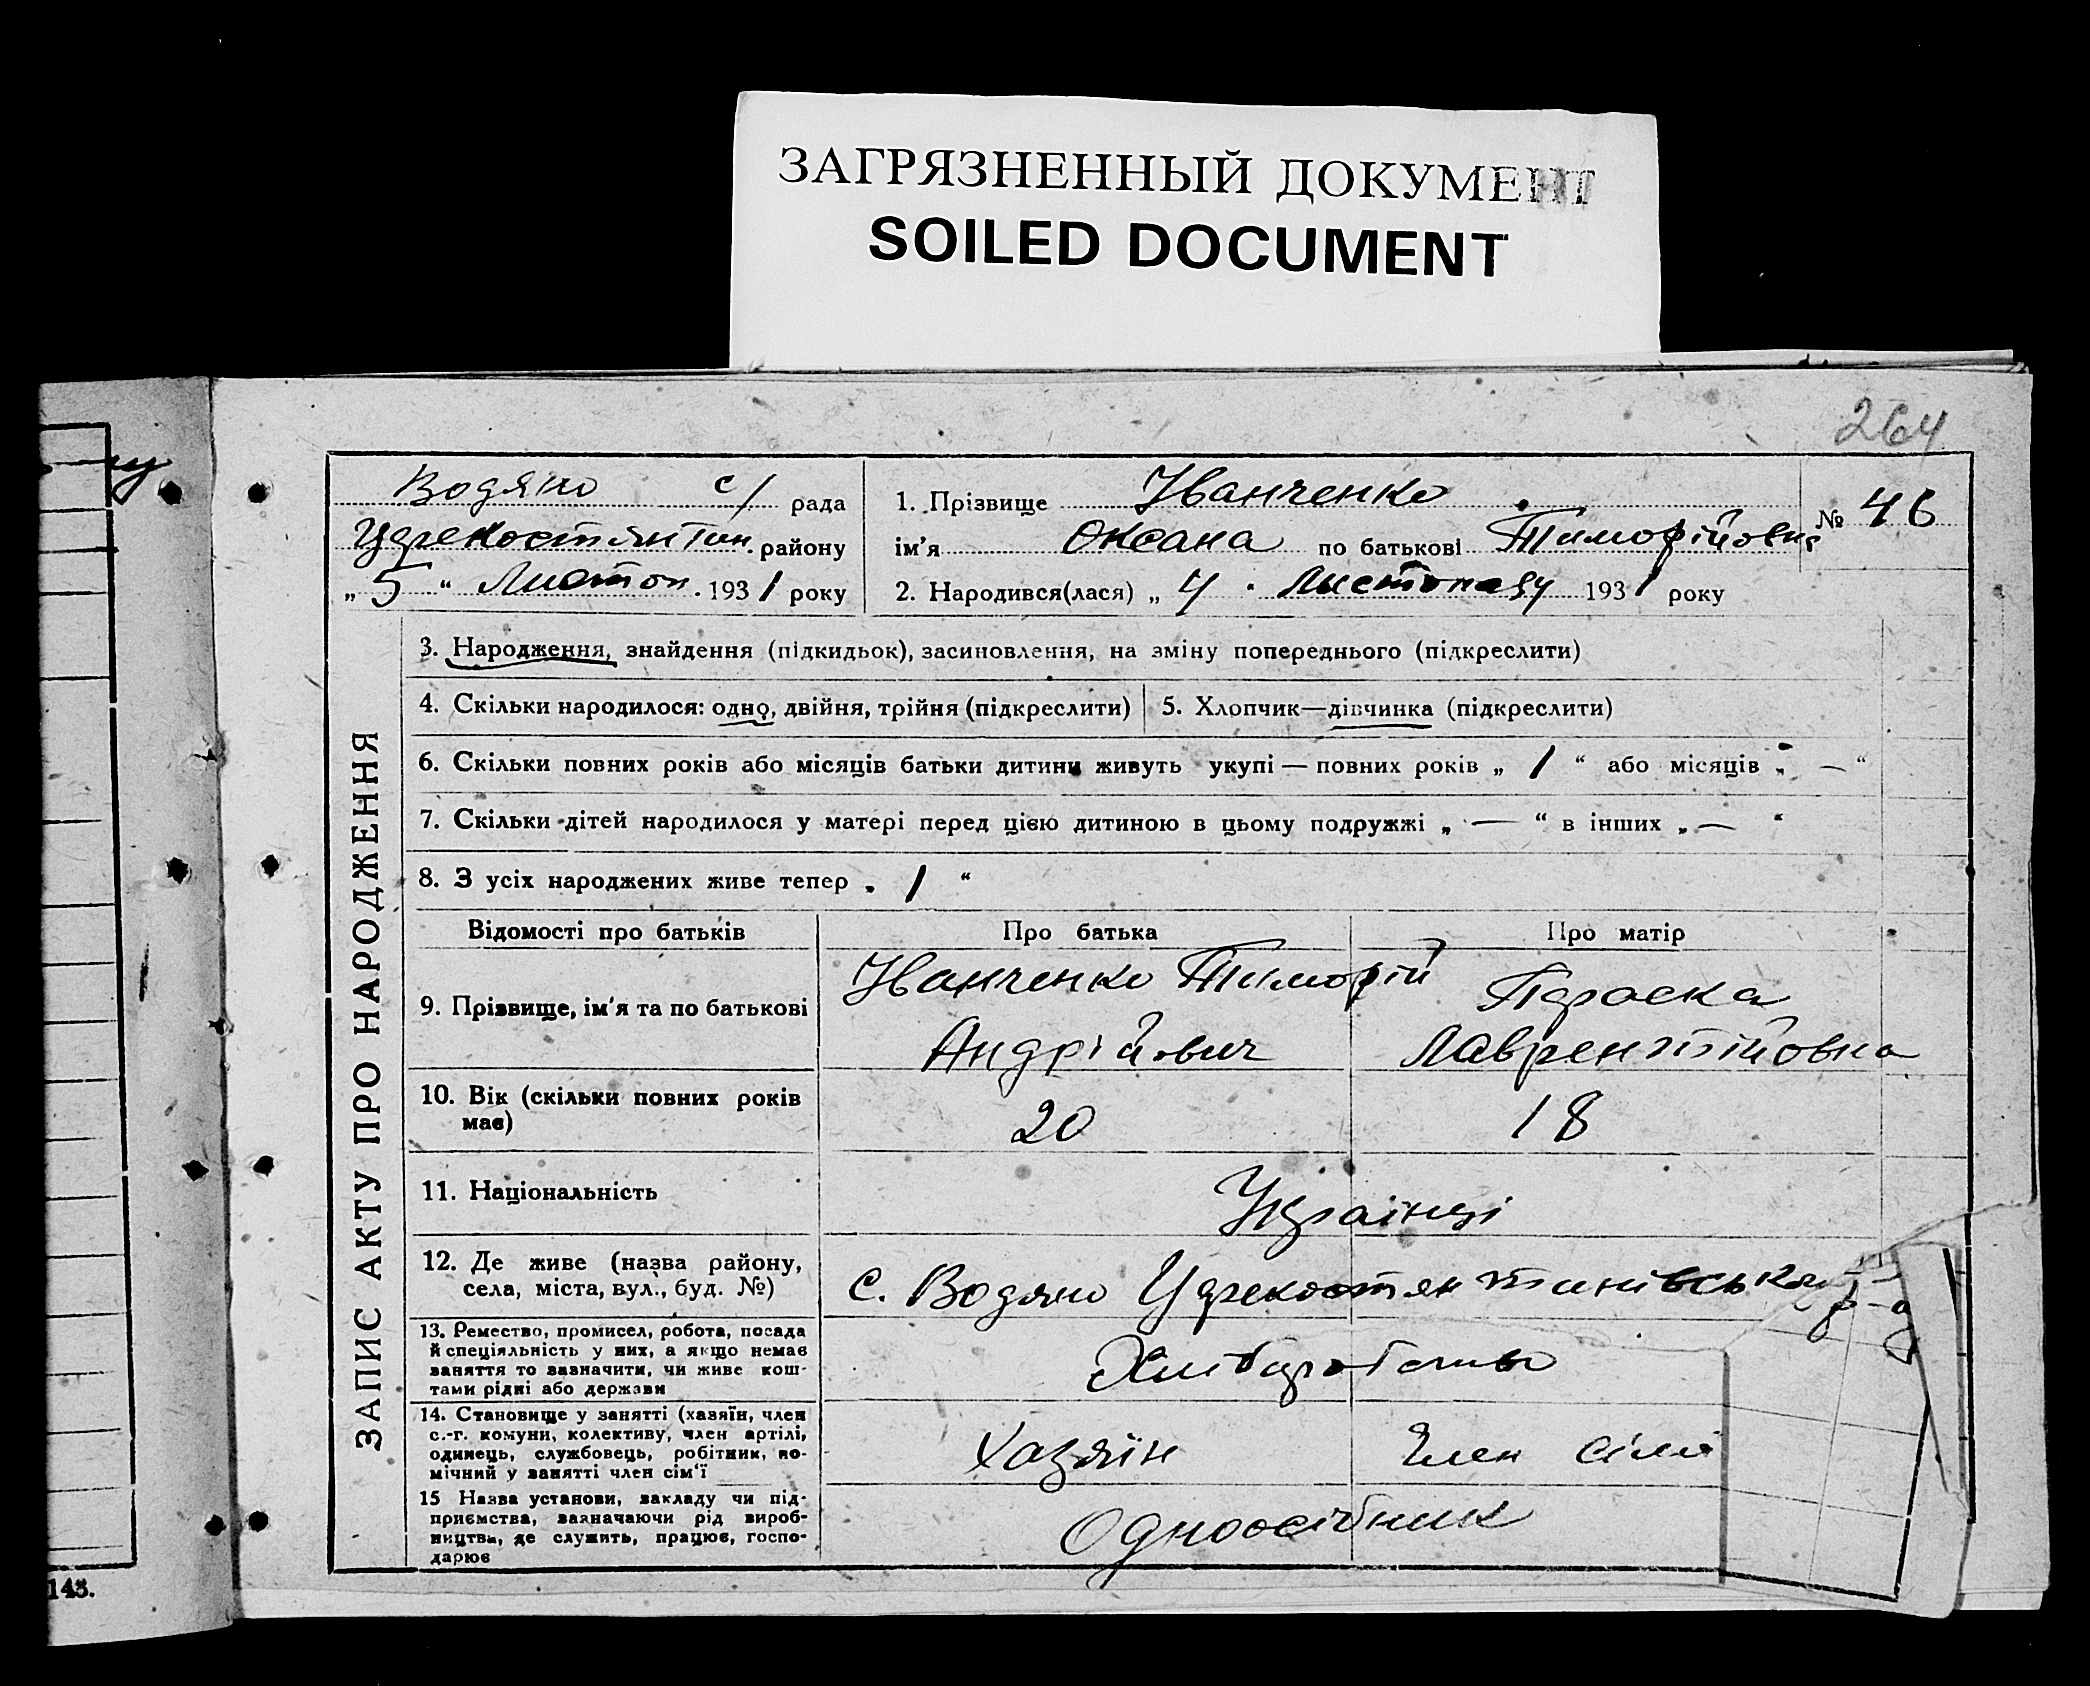 ЗАГРЯЗНЕННЫЙ ДОКУМЕНТ
SOILED DOCUMENT
264
Водяно с/ рада
району
„ 5 “ Листоп. 1931 року
1. Прізвище Іванченко
ім’я Оксана по батькові Тимофійовна
2. Народився(лася) „ 4 “ Листопаду 1931 року
№ 46
ЗАПИС АКТУ ПРО НАРОДЖЕННЯ
3. Народження, знайдення (підкидьок), засиновлення, на зміну попереднього (підкреслити)
4. Скільки народилося: одно, двійня, трійня (підкреслити)
5. Хлопчик—дівчинка (підкреслити)
6. Скільки повних років або місяців батьки дитини живуть укупі — повних років „ 1 “ або місяців „ — “
7. Скільки дітей народилося у матері перед цією дитиною в цьому подружжі „ — “ в інших „ — “
8. З усіх народжених живе тепер „ 1 “
Відомості про батьків
Про батька
Про матір
9. Прізвище, ім’я та по батькові
Іванченко Тимофій
Андрійович
Параска
Лаврентійовна
10. Вік (скільки повних років
має)
20
18
11. Національність
Українці
12. Де живе (назва району,
села, міста, вул., буд. №)
с. Водяно
13. Ремество, промисел, робота, посада
й спеціяльність у них, а якщо немає
заняття то зазначити, чи живе кош-
тами рідні або держави
Хлібороби
14. Становище у занятті (хазяїн, член
с.-г. комуни, колективу, член артілі,
одинець, службовець, робітник, по-
мічний у занятті член сім’ї
Хазяїн
Член сімї
15 Назва установи, закладу чи під-
приємства, зазначаючи рід вироб-
ництва, де служить, працює, госпо-
дарює
Одноосібник
143.